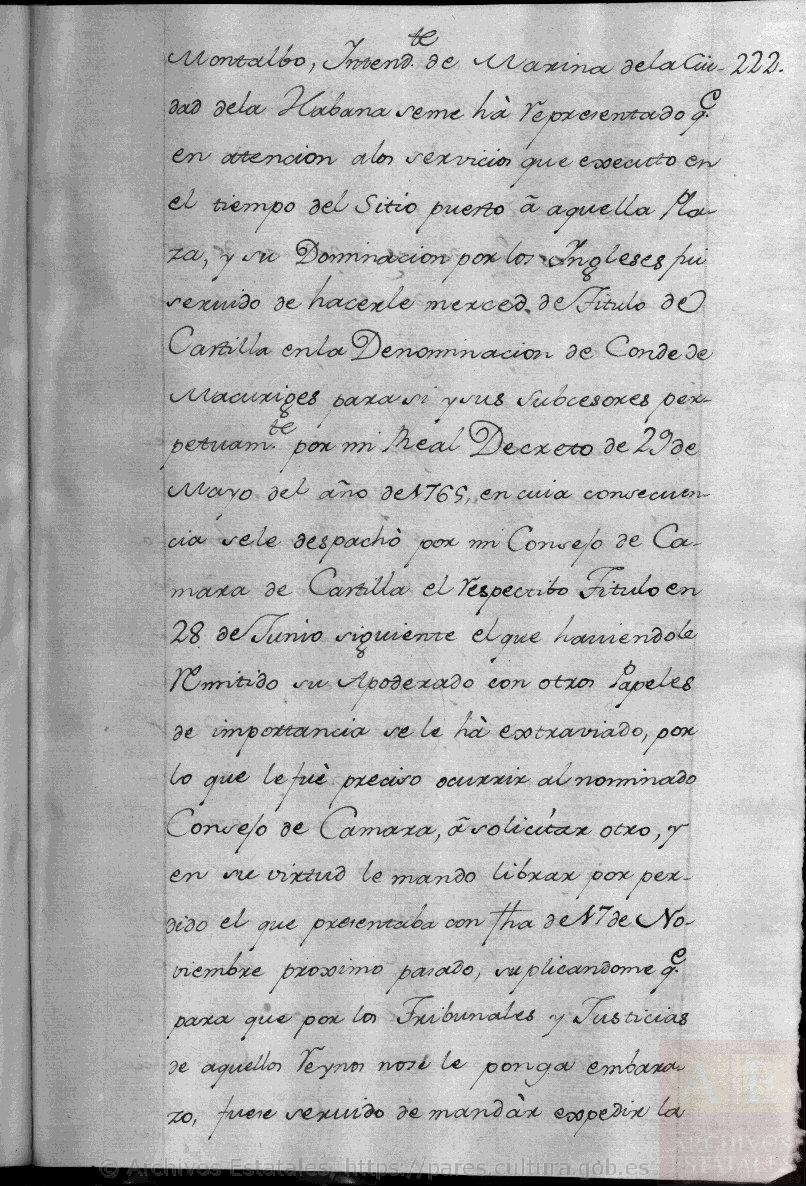 Montalbo, Intend.te de Marina dela Ciu- 222.
dad dela Habana seme hà representado q.e
en atencion alos servicios que executto en
el tiempo del Sitio puesto â aquella Pla-
za, y su Dominacion por los Ingleses fui
servido de hacerle merced de Titulo de
Castilla enla Denominacion de Conde de
Macuriges para si y sus Subcesores per-
petuam.te por mi Real Decreto de 29 de
Mayo del año de 1765, en cuia consecuen-
cia sele despachò por mi Consejo de Ca-
mara de Castilla el respectibo Titulo en
28 de Junio siguiente el que haviendole
remitido su Apoderado con otros Papeles
de importancia se le hà extraviado, por
lo que le fuè preciso ocurrir al nominado
Consejo de Camara, â solicitar otro, y
en su virtud le mando librar por per-
dido el que presentaba con fha de 17 de No-
viembre proximo pasado, suplicandome q.e
para que por los Tribunales y Justicias
de aquellos Reynos nose le ponga embara-
zo, fuese servido de mandàr expedir la
© Archivos Estatales, https://pares.cultura.gob.es
AE
ARCHIVOS
ESTATALES